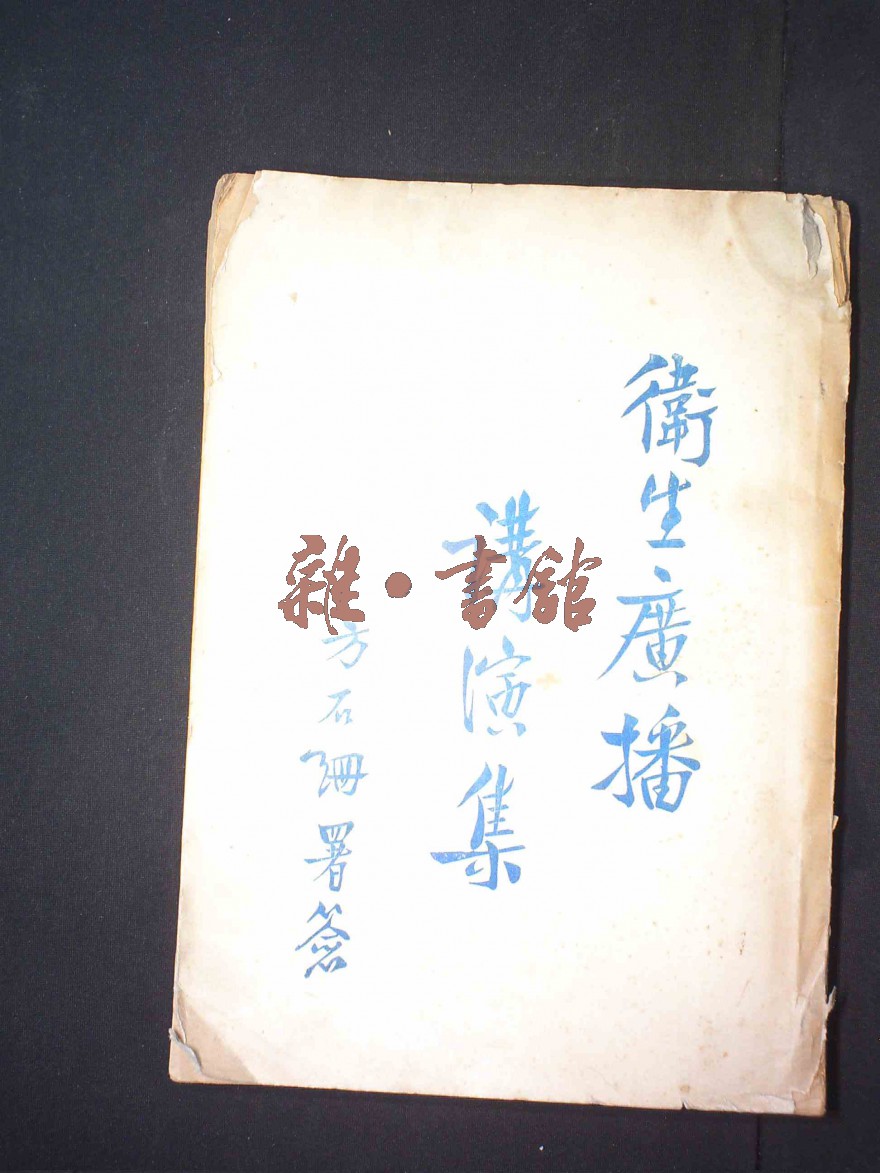 衛生廣播
講演集
方石珊署簽
雜·書館